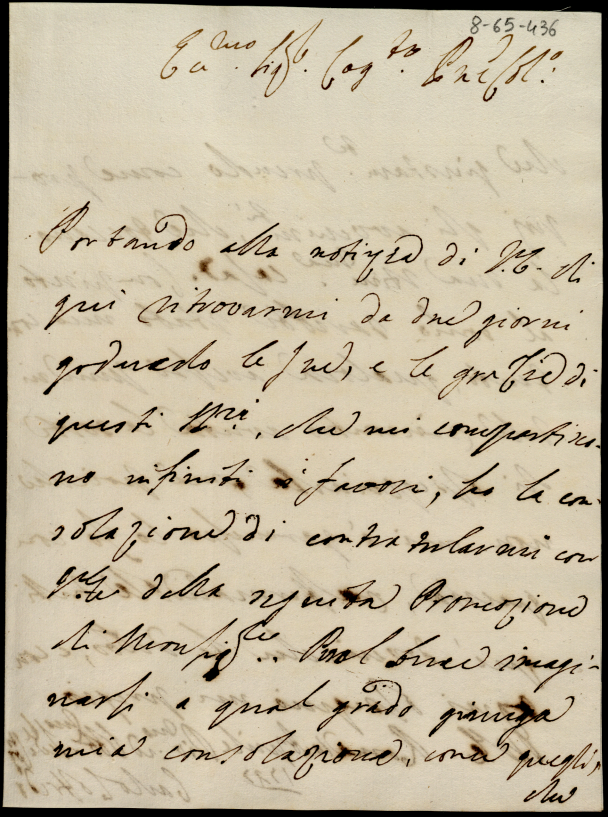 8-65-436
Ecc.mo Sig.r Cog.to P.ne Col.o
Portando alla notizia di V.E. di
qui ritrovarmi da due giorni
godendo le sue, e le grazie di
questi SS.ri, che mi compartisco-
no infiniti i favori, ho la con-
solazione di contratularmi con
della seguita Promozione
di Monsig.re. Puol bene imagi-
narsi a qual grado giunga
mia consolazione, come quegli,
che